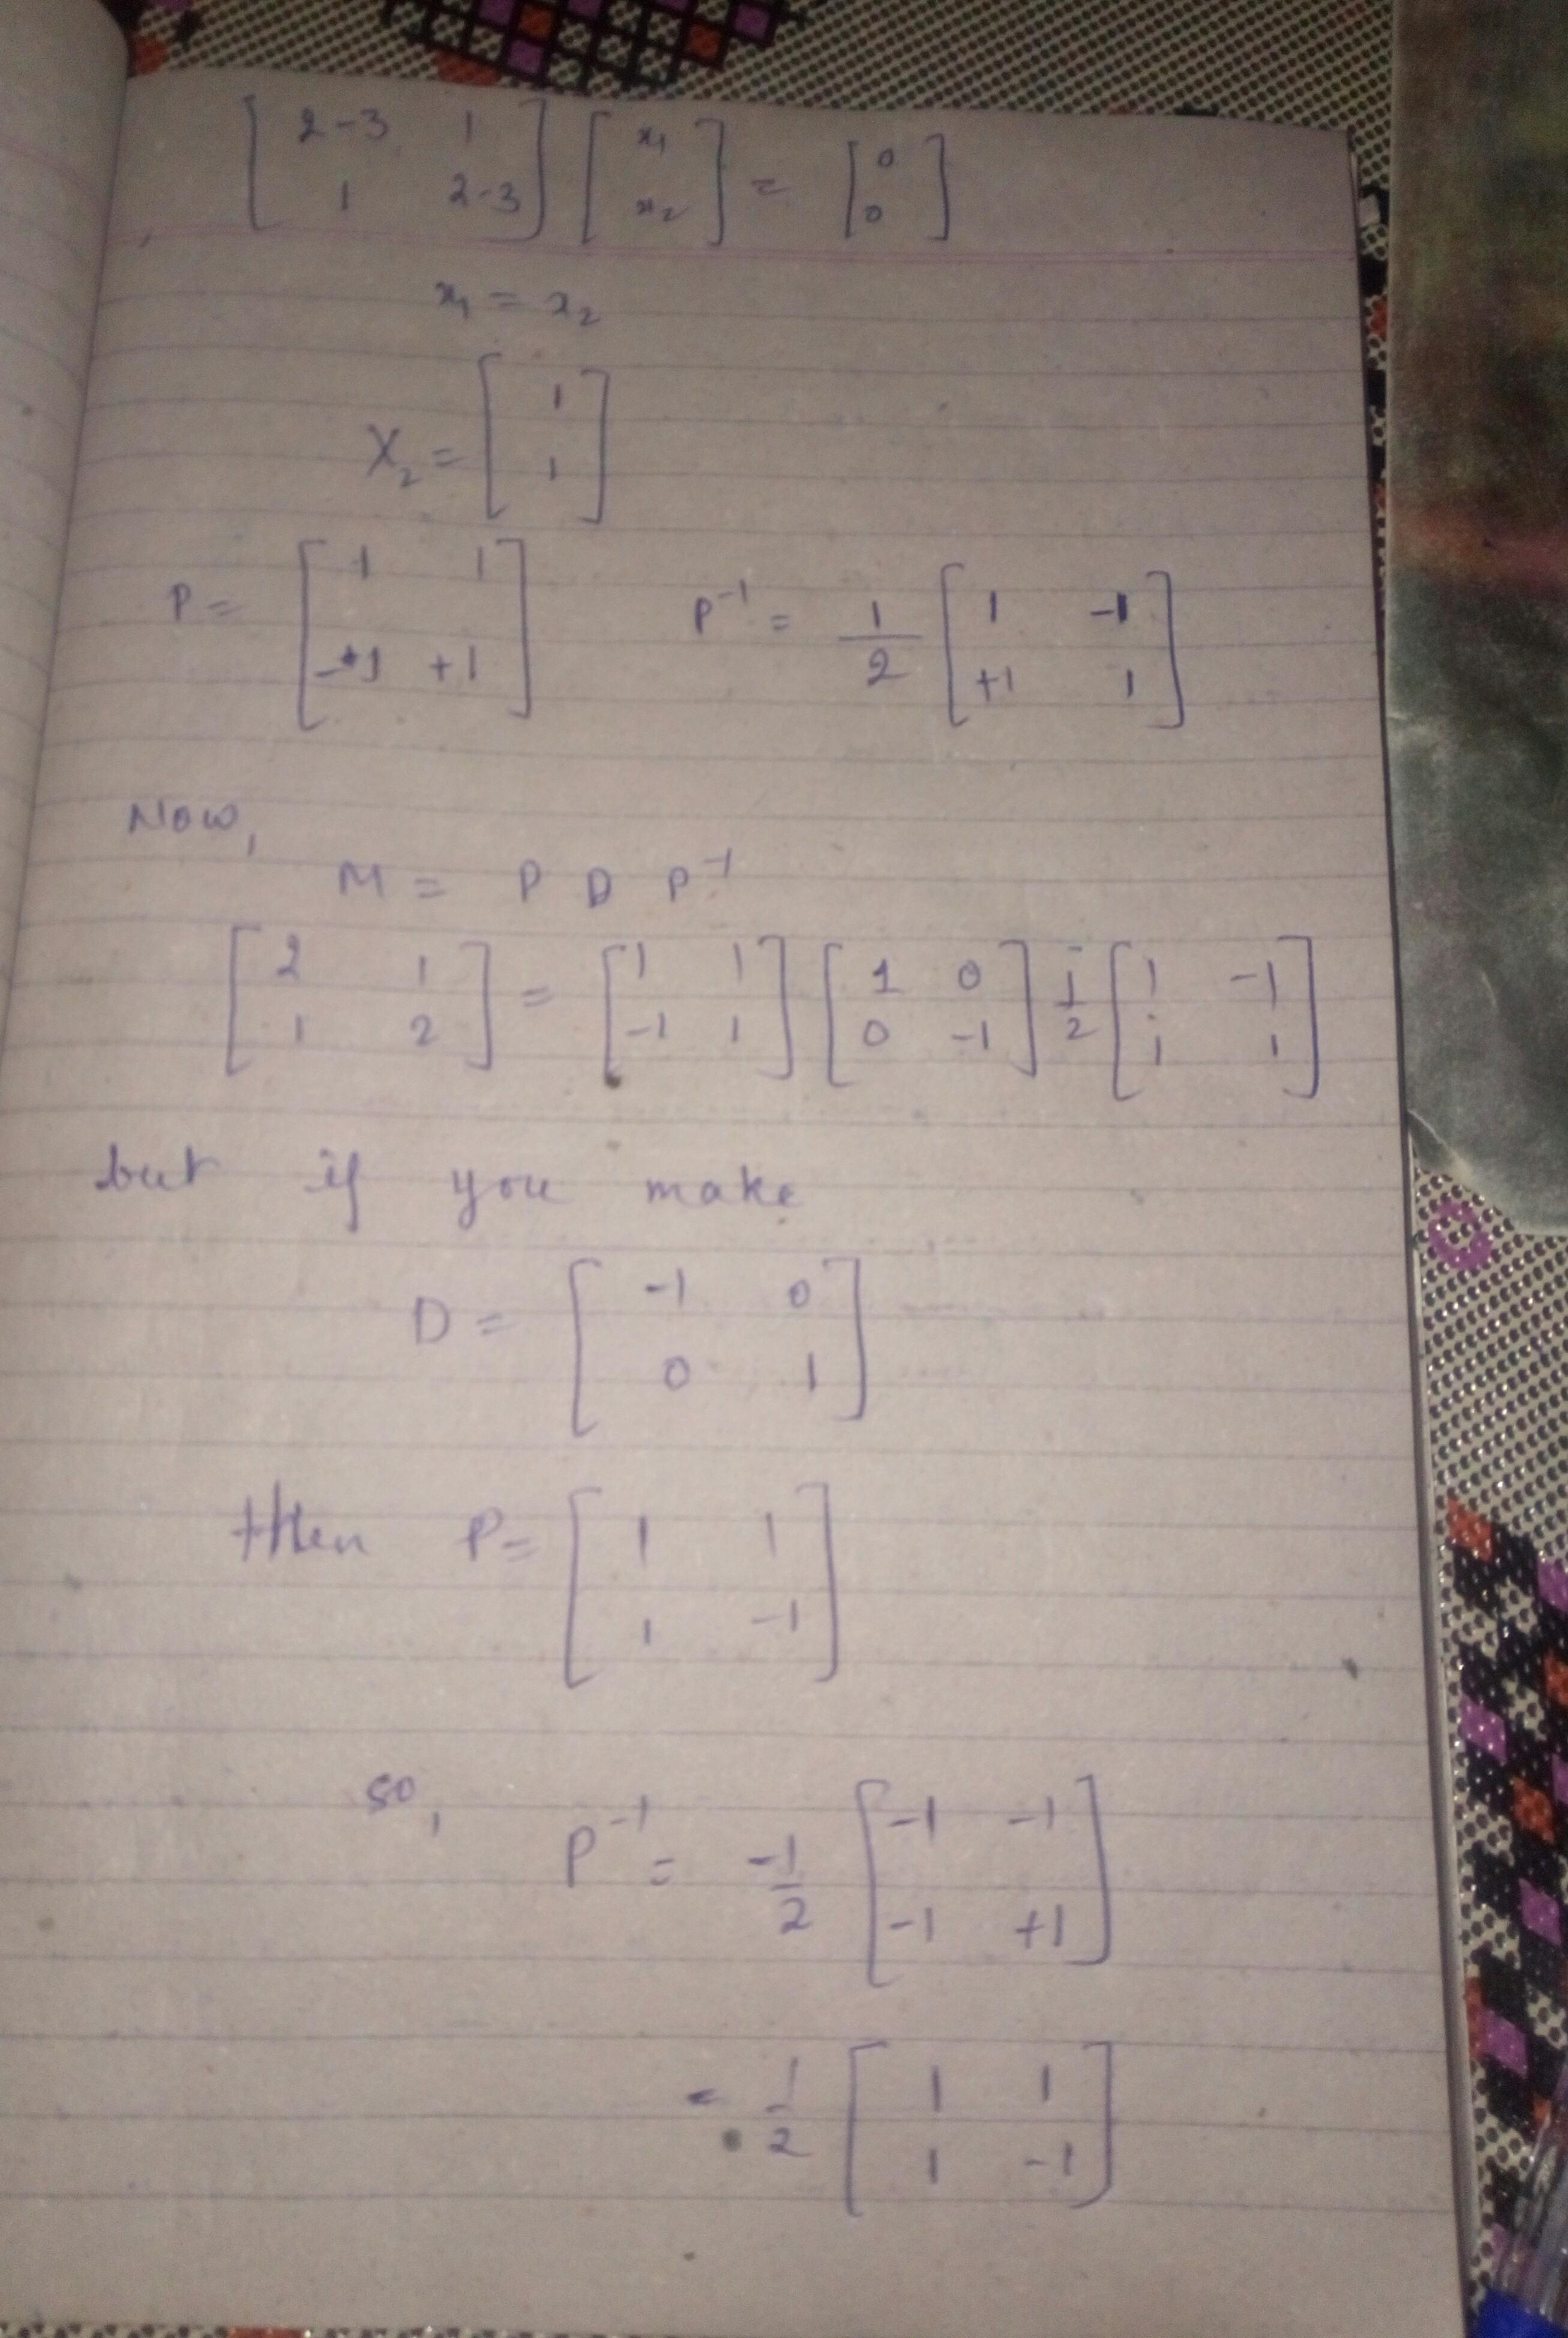 [2-3 1; 1 2-3] [x₁; x₂] = [0; 0]
x₁ = x₂
X₂ = [1; 1]
P = [1 1; -1 +1] P⁻¹ = 1/2 [1 -1; +1 1]
Now,
M = P D P⁻¹
[2 1; 1 2] = [1 1; -1 1] [1 0; 0 -1] 1/2 [1 -1; 1 1]
but if you make
D = [-1 0; 0 1]
then P = [1 1; 1 -1]
so, P⁻¹ = -1/2 [-1 -1; -1 +1]
= 1/2 [1 1; 1 -1]